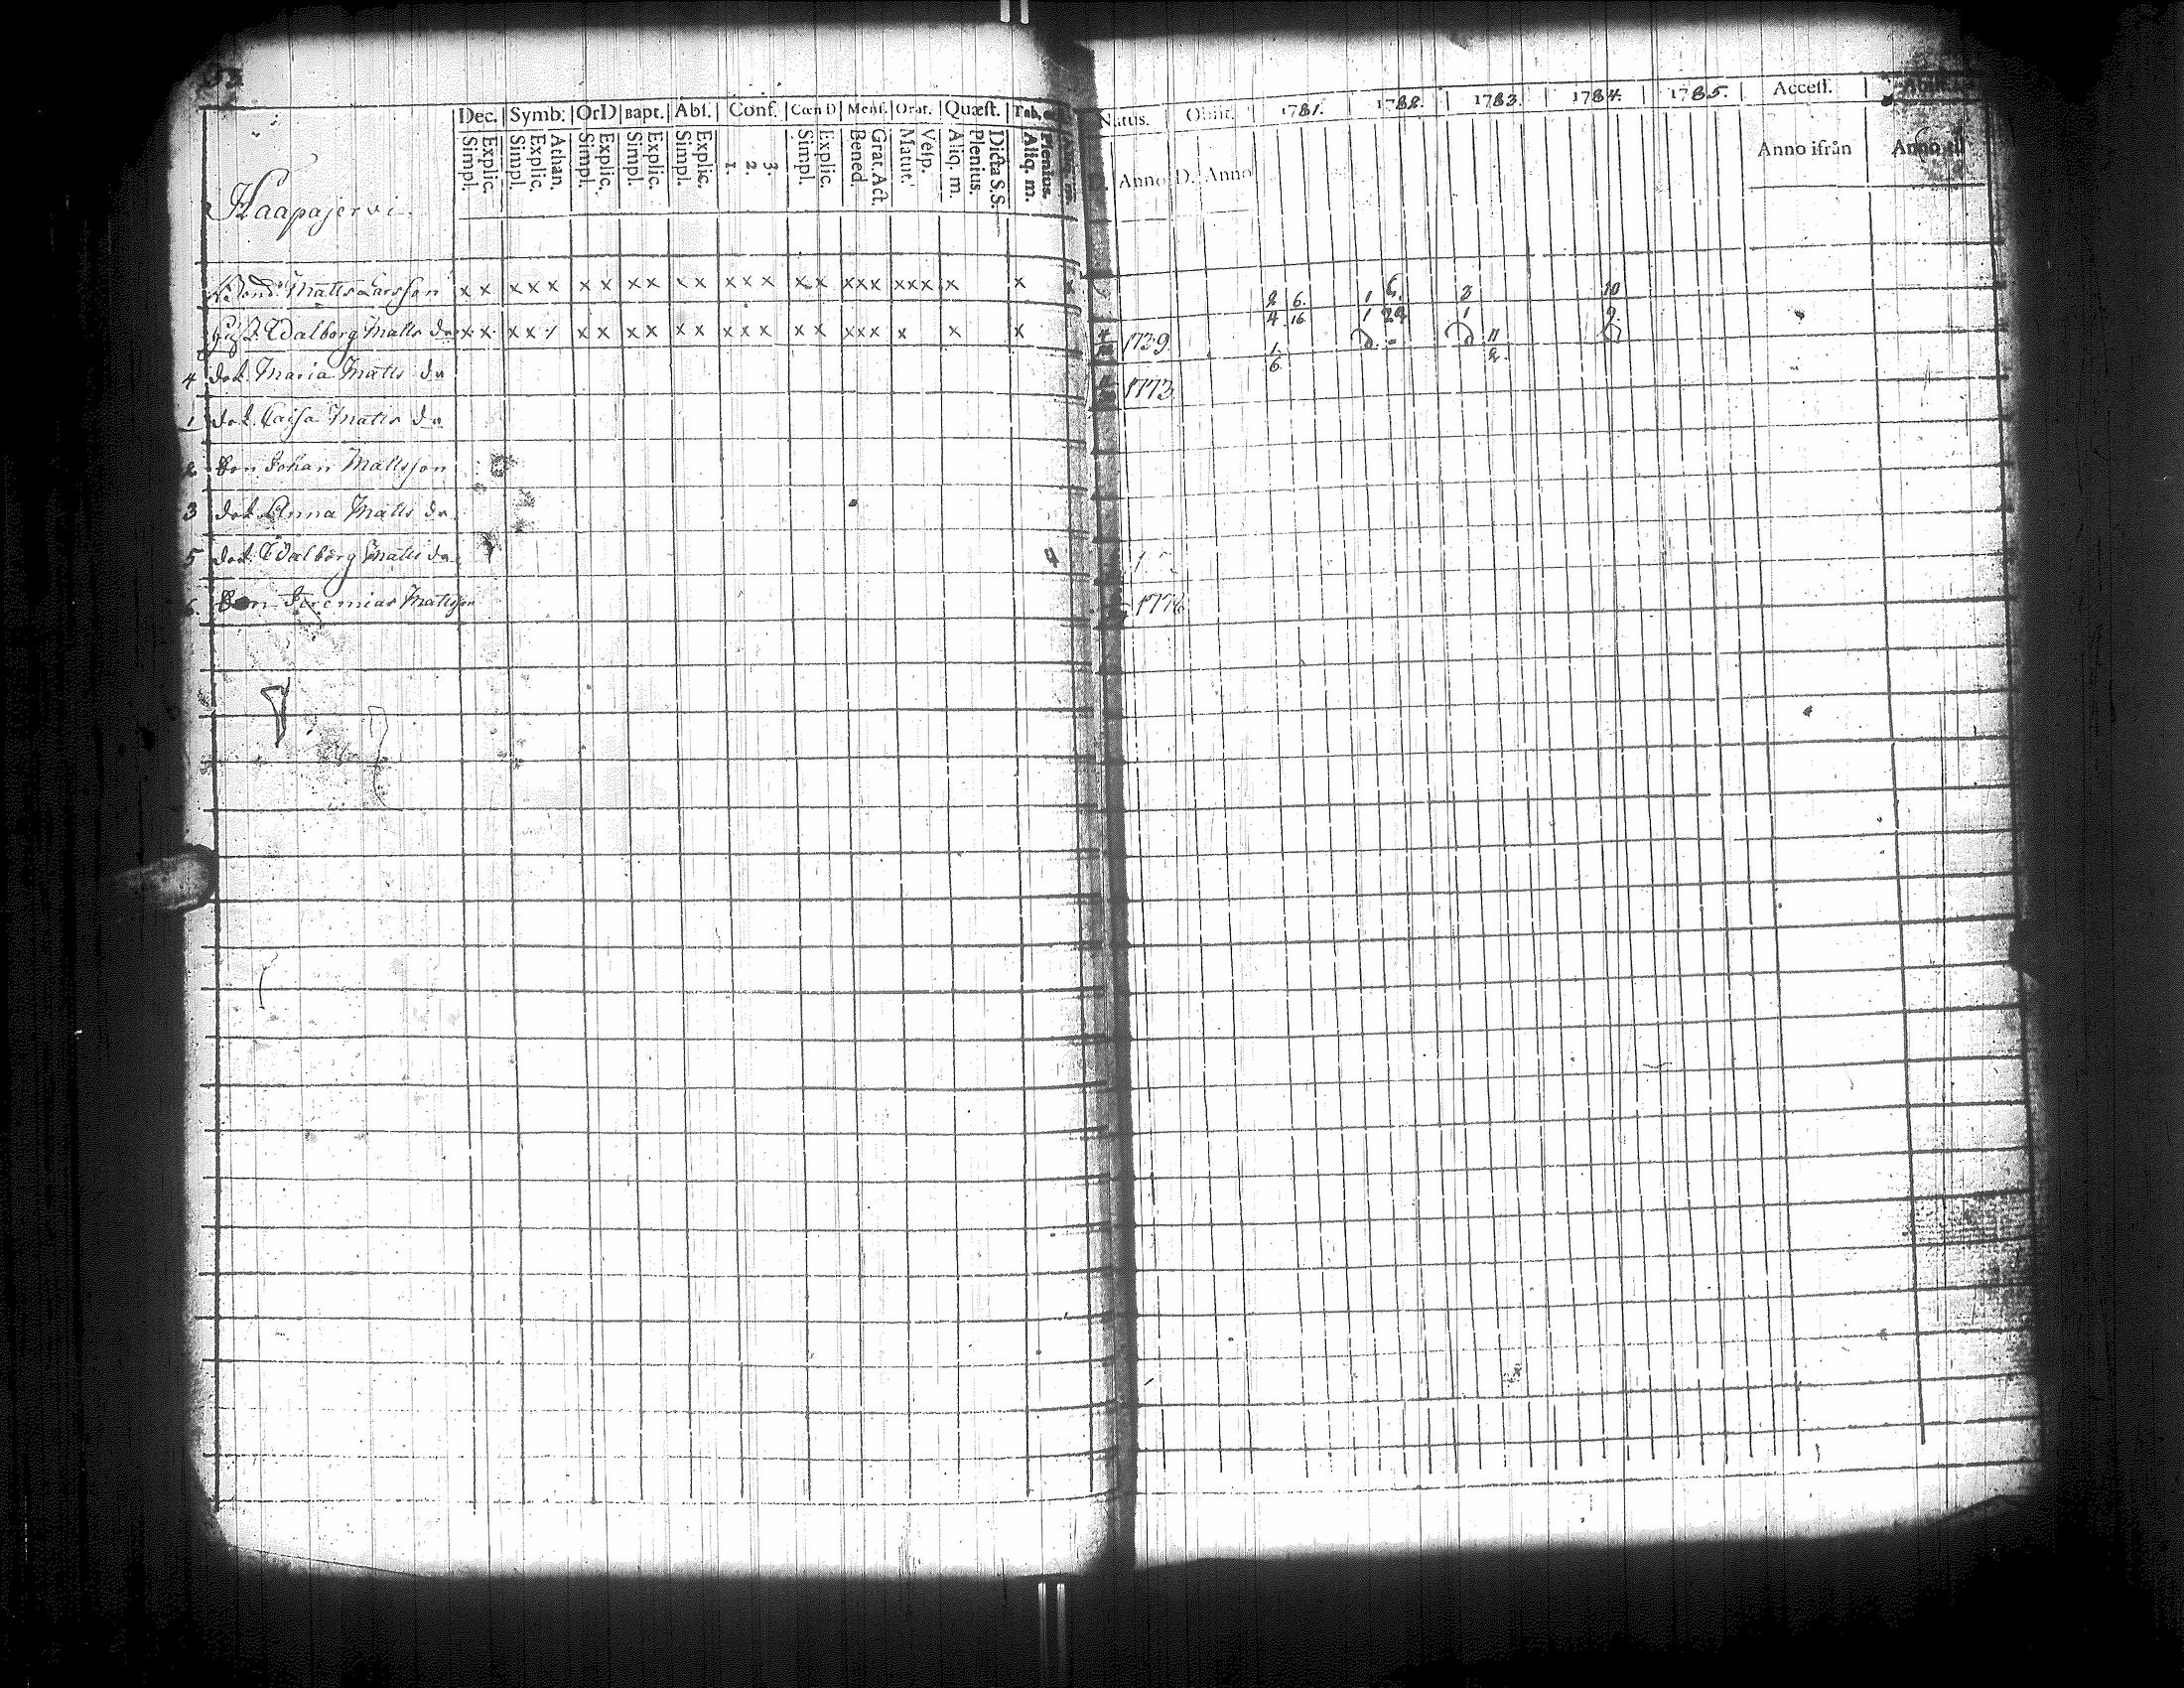 Dec. Symb. OrD Bapt. Abs. Conf. Cœn D Mens. Orat. Quæst. Tab.
Simpl. Explic. Simpl. Explic. Athan. Simpl. Explic. Simpl. Explic. Simpl. Explic. 1. 2. 3. Simpl. Explic. Bened. Grat. Act. Matut. Vesp. Aliq. m. Plenius. Dicta S.S. Aliq. m. Plenius.
Natus. Obiit. 1781. 1782. 1783. 1784. 1785. Access.
Anno D. Anno Anno ifrån Anno till
Haapajervi.
Matts Larsson x x x x x x x x x x x x x x x x x x x x x x x x
2 6. 1 6. 3 10
4 16 1 24 1 9.
Walborg Matts dr x x x x x x x x x x x x x x x x x x x x x x 1739 1 6. 11
4 dot. Maria Matts dr 1773
1 dot. Caisa Matts dr
2 Son Johan Mattsson
3 dot. Anna Matts dr
5 dot. Walborg Matts dr
6. Son Jeremias Mattsson